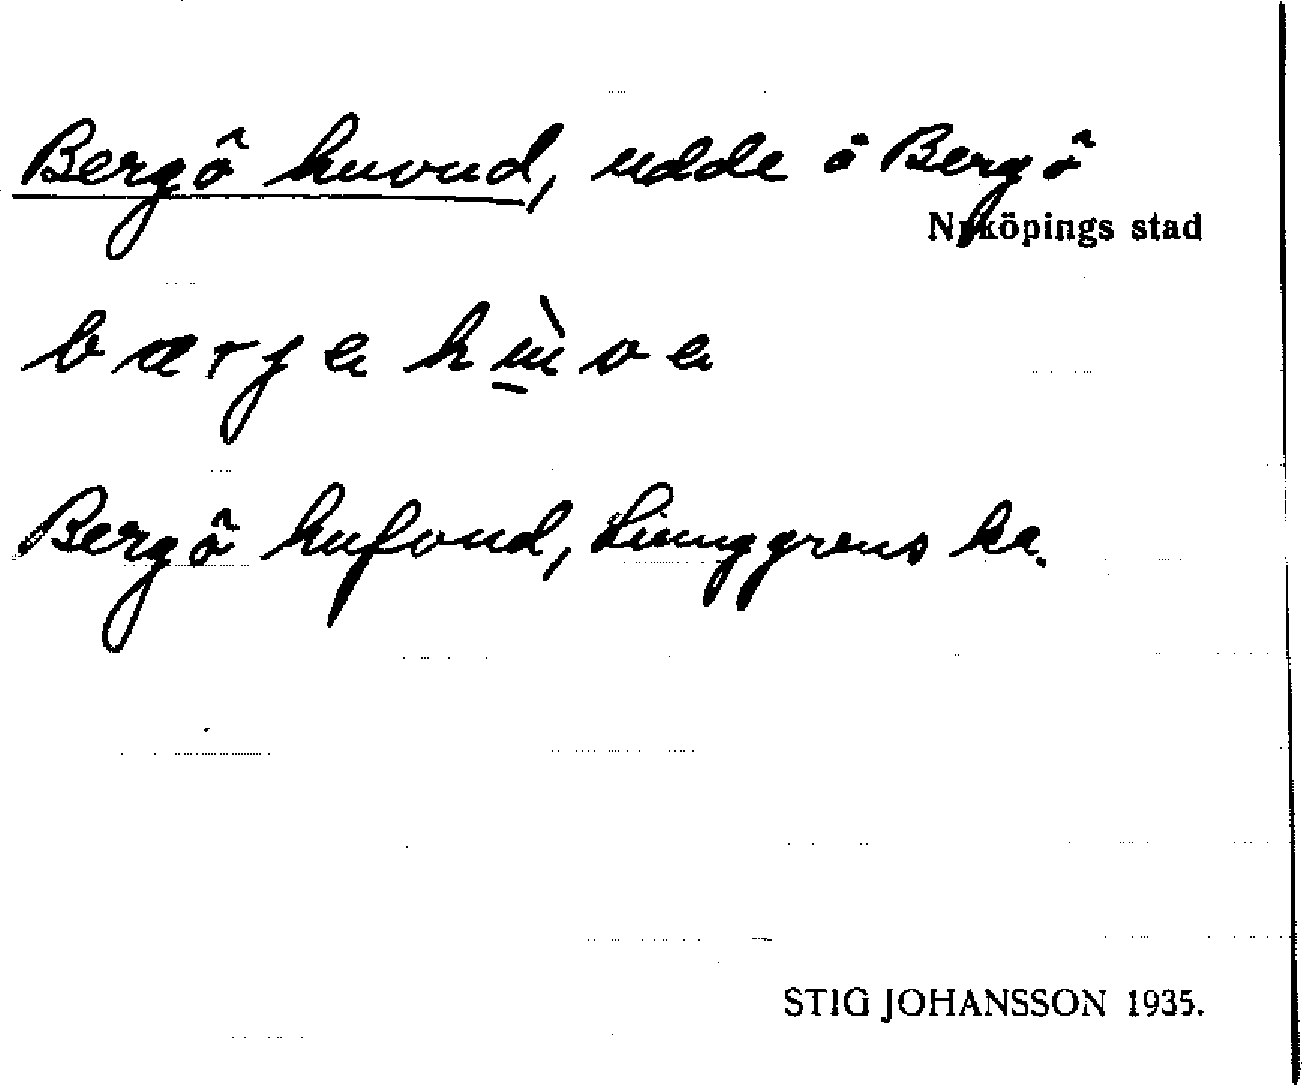 Bergö huvud, udde å Bergö
Nyköpings stad
bærja hùva
Bergö hufvud, Liunggrens ka.
STIG JOHANSSON 1935.